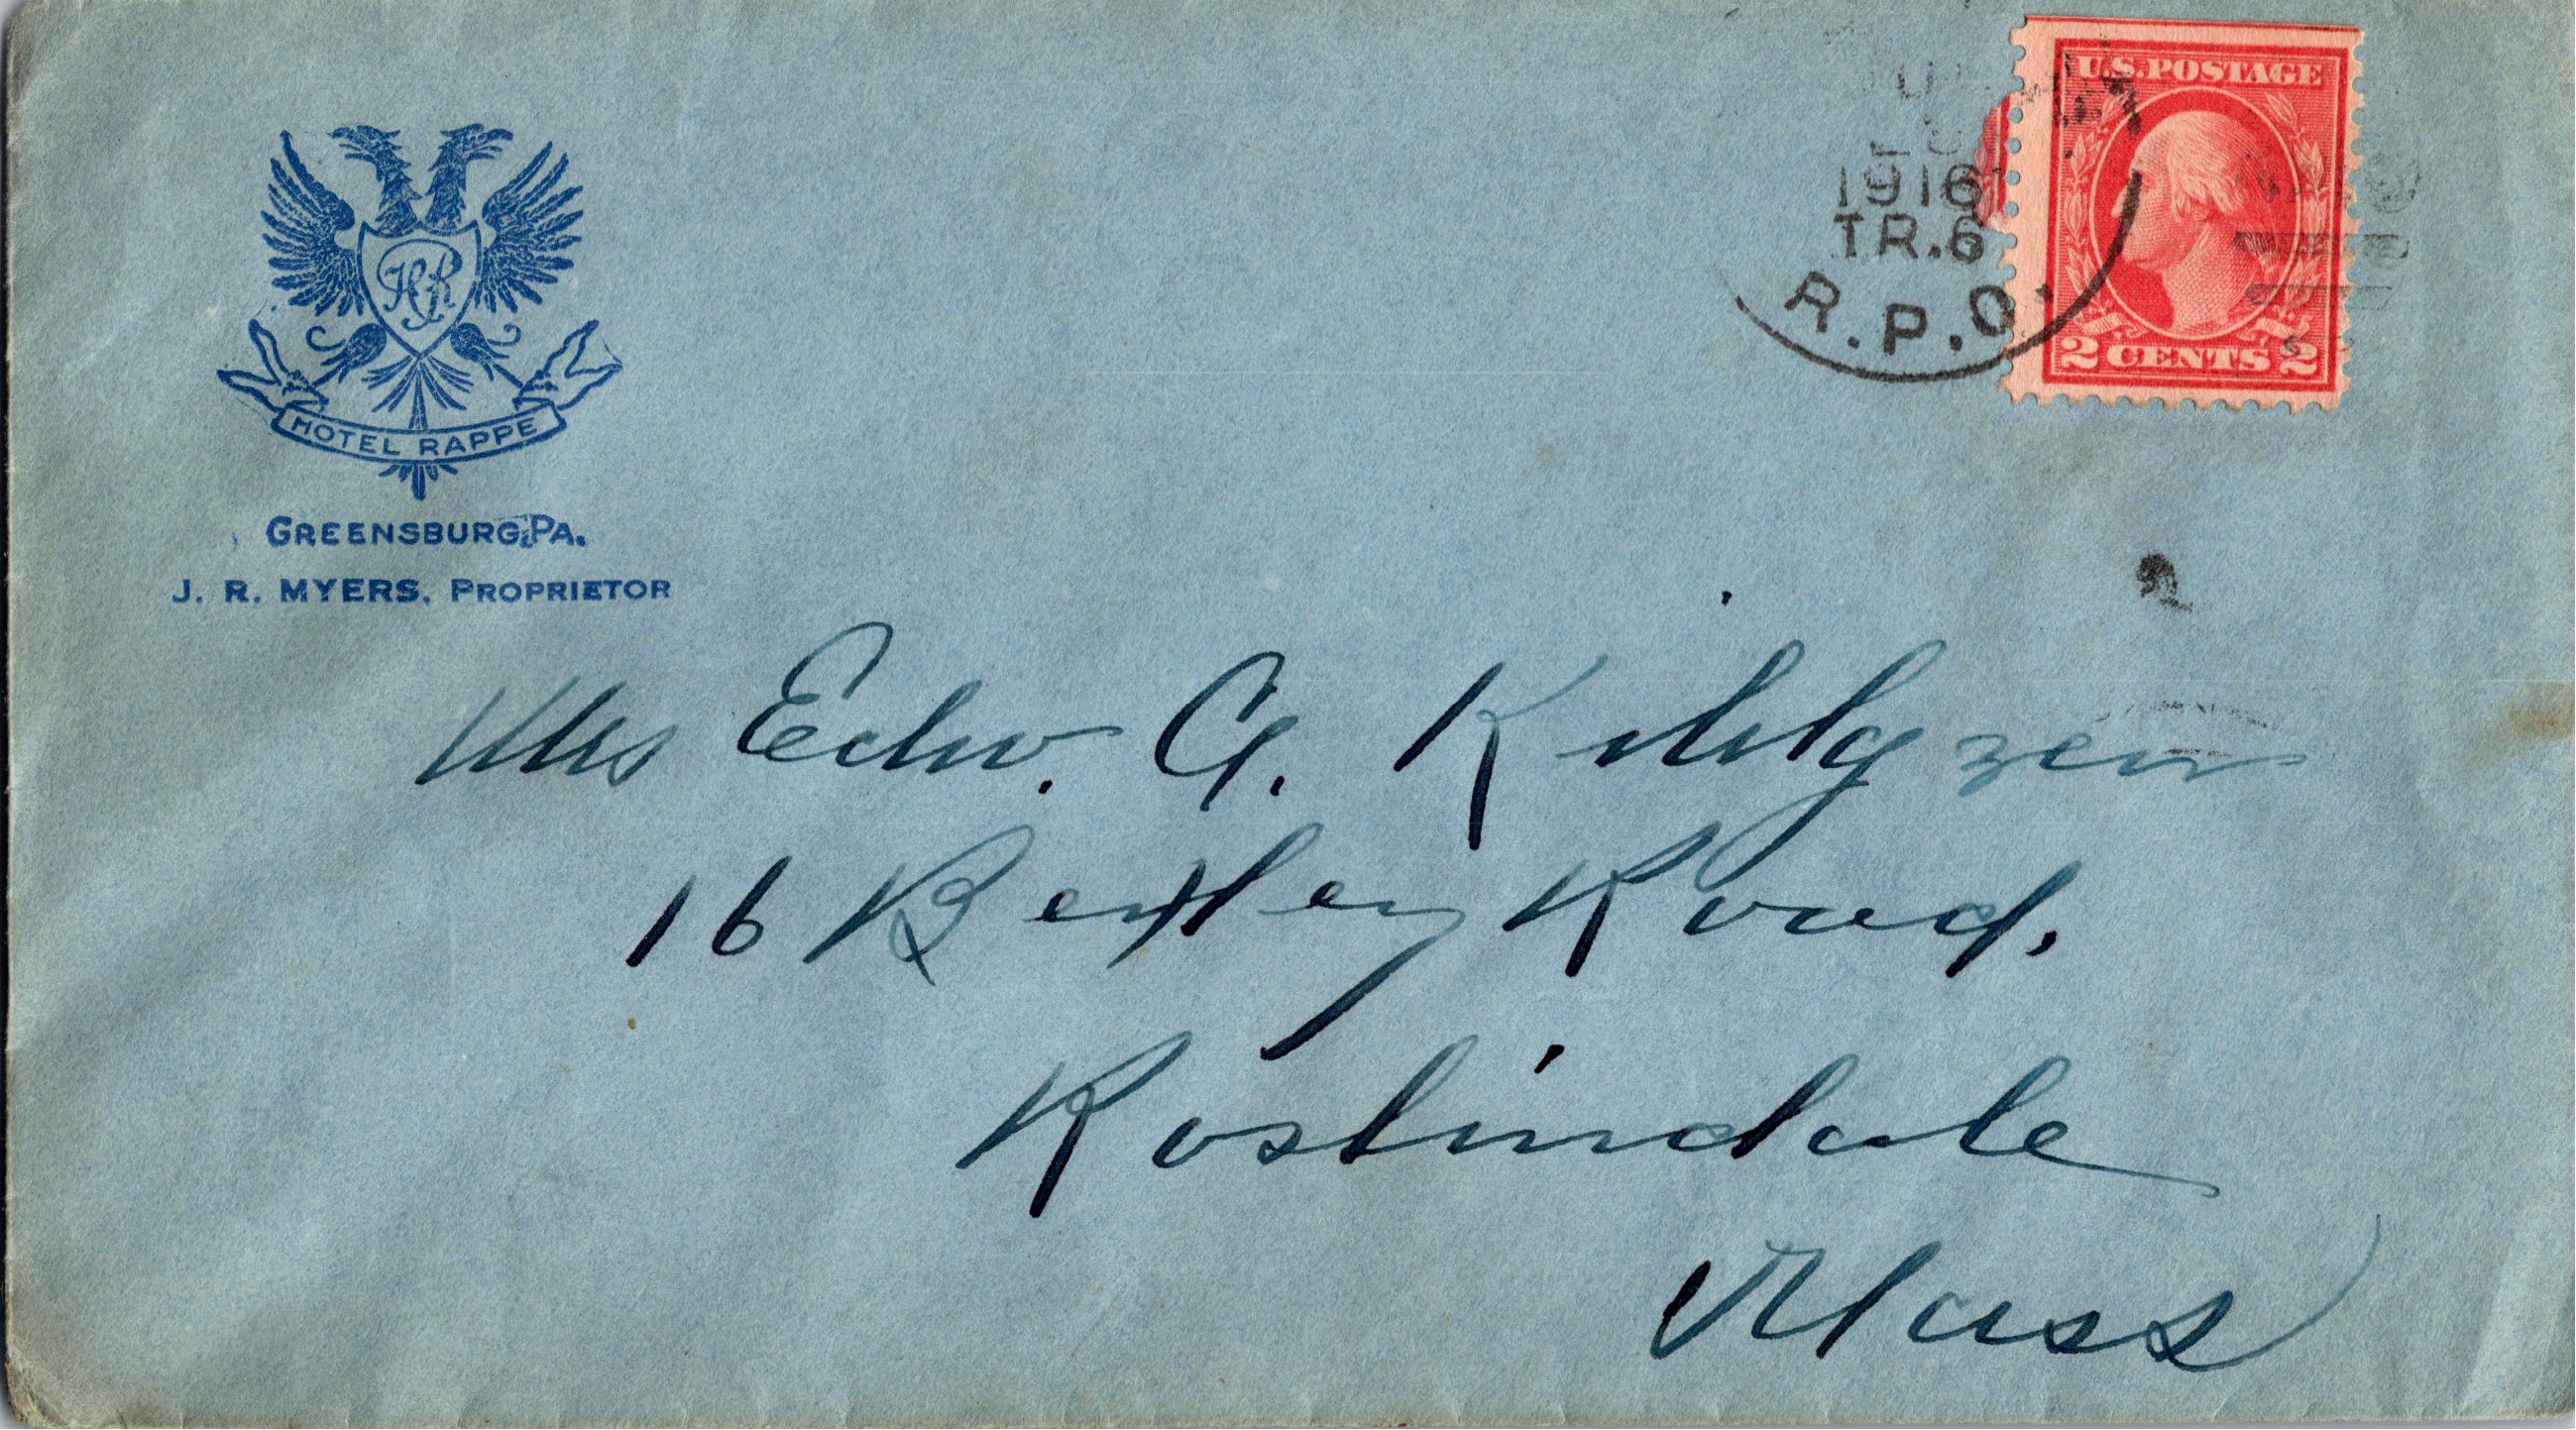 HR
HOTEL RAPPE
GREENSBURG, PA.
J. R. MYERS, PROPRIETOR
1916
TR.6
R.P.O.
U.S. POSTAGE
2 CENTS 2
Mrs Edw. G.
16 Bexley Road.
Roslindale
Mass